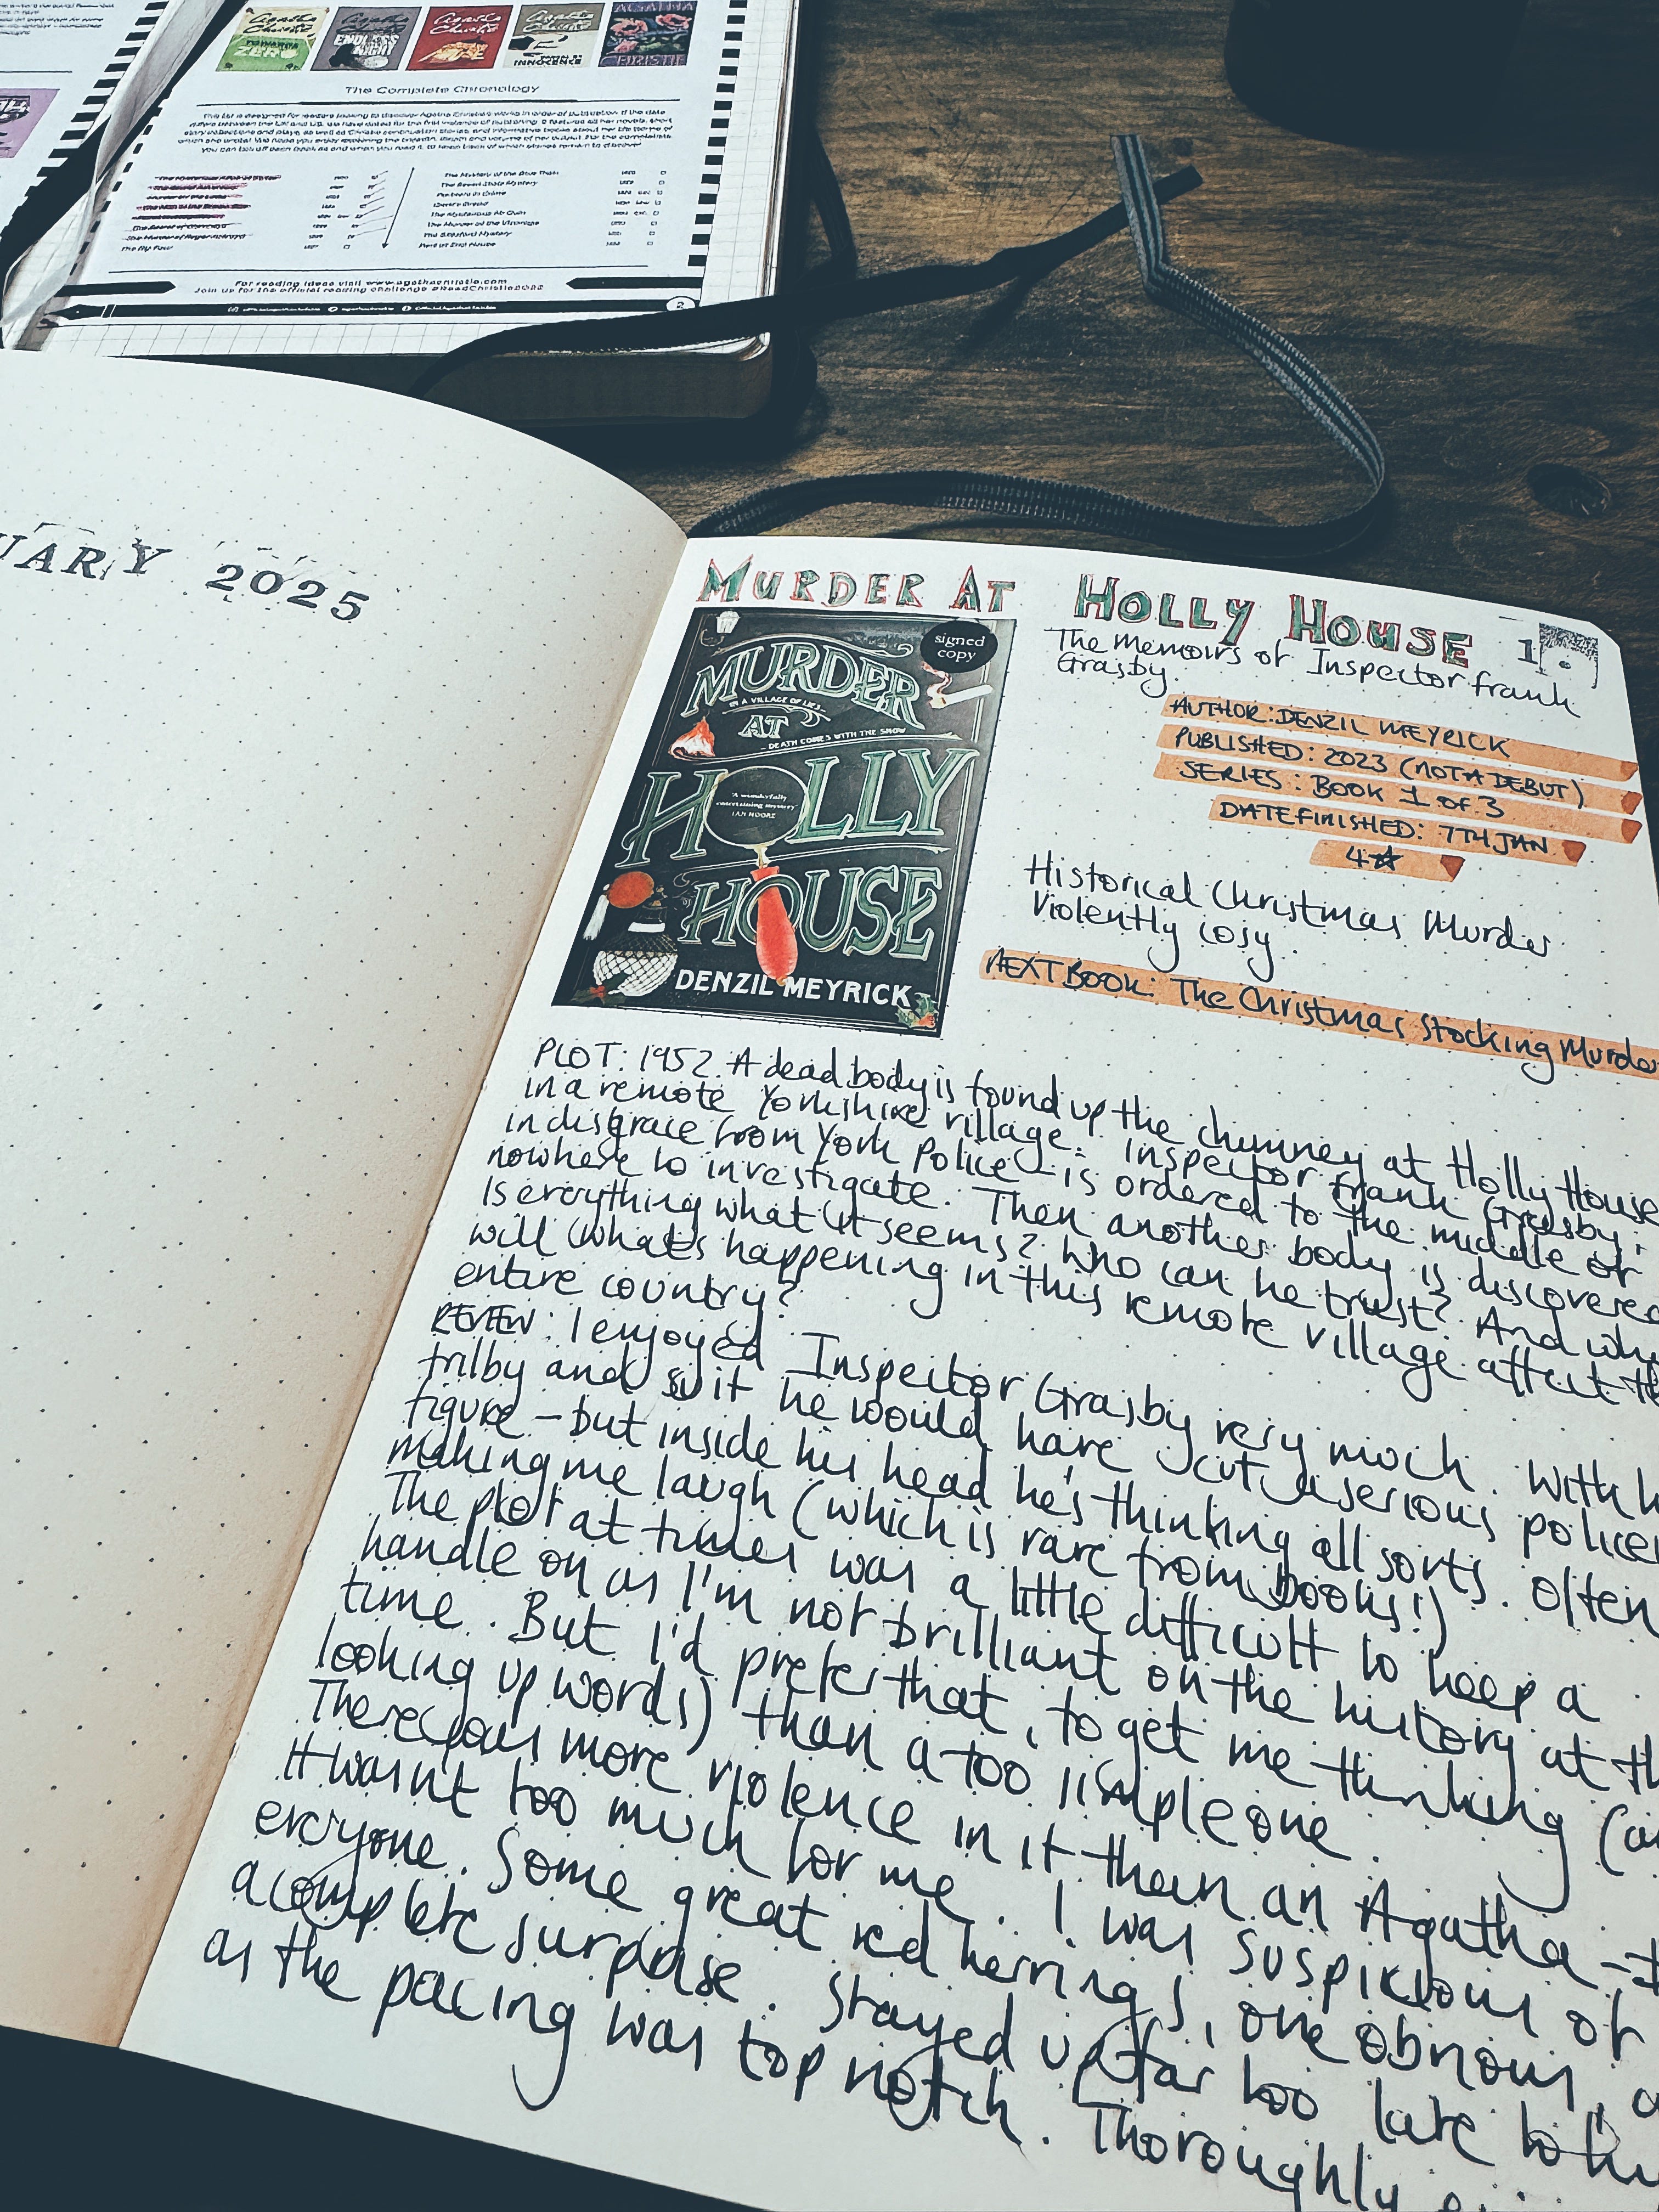 Agatha Christie
TOWARDS ZERO
Agatha Christie
ENDLESS NIGHT
Agatha Christie
Agatha Christie
INNOCENCE
AGATHA CHRISTIE
The Complete Chronology
The Mystery of the Blue Train
The Seven Dials Mystery
Partners in Crime
The Mysterious Mr Quin
The Murder at the Vicarage
The Sittaford Mystery
Peril at End House
The Big Four
For reading ideas visit www.agathachristie.com
Join us for the official reading challenge #ReadChristie2022
2
UARY 2025
MURDER AT HOLLY HOUSE
1
The Memoirs of Inspector Frank
Grasby.
signed copy
MURDER
IN A VILLAGE OF LIES...
AT
... DEATH COMES WITH THE SNOW
HOLLY
'A wonderfully
entertaining mystery'
IAN MOORE
HOUSE
DENZIL MEYRICK
AUTHOR: DENZIL MEYRICK
PUBLISHED: 2023 (NOT A DEBUT)
SERIES: BOOK 1 of 3
DATE FINISHED: 7TH JAN
4☆
Historical Christmas Murder
Violently cosy.
NEXT BOOK: The Christmas Stocking Murde
PLOT: 1952. A dead body is found up the chimney at Holly House
in a remote Yorkshire village. Inspector Frank Grasby,
in disgrace from York Police – is ordered to the middle of
nowhere to investigate. Then another body is discovered
Is everything what it seems? Who can he trust? And wh
will whats happening in this remote village affect th
entire country?
REVIEW: I enjoyed Inspector Grasby very much. With h
trilby and suit he would have cut a serious police
figure – but inside his head he's thinking all sorts. Often
making me laugh (which is rare from books!)
The plot at times was a little difficult to keep a
handle on as I'm not brilliant on the history at th
time. But I'd prefer that, to get me thinking (an
looking up words) than a too simple one.
There was more violence in it than an Agatha – 
It wasn't too much for me. I was suspicious of
everyone. Some great red herrings, one obvious, a
a complete surprise. Stayed up far too late to
as the pacing was top notch. Thoroughly